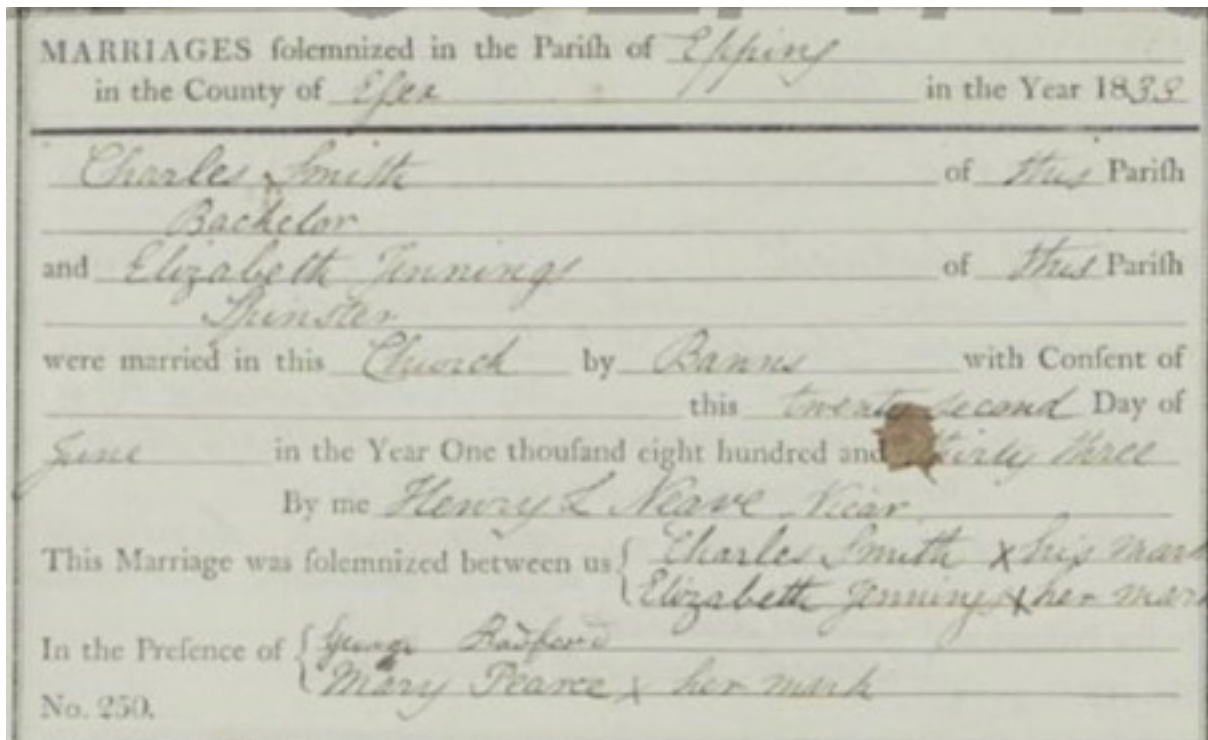 MARRIAGES ſolemnized in the Pariſh of Epping
in the County of Eſsex in the Year 1833
Charles Smith of this Pariſh
Bachelor
and Elizabeth Jennings of this Pariſh
Spinster
were married in this Church by Banns with Conſent of
this twenty second Day of
June in the Year One thouſand eight hundred and thirty three
By me Henry L Neave Vicar
This Marriage was ſolemnized between us { Charles Smith x his mark
Elizabeth Jennings x her mark
In the Preſence of { George Radford
Mary Pearce x her mark
No. 250.